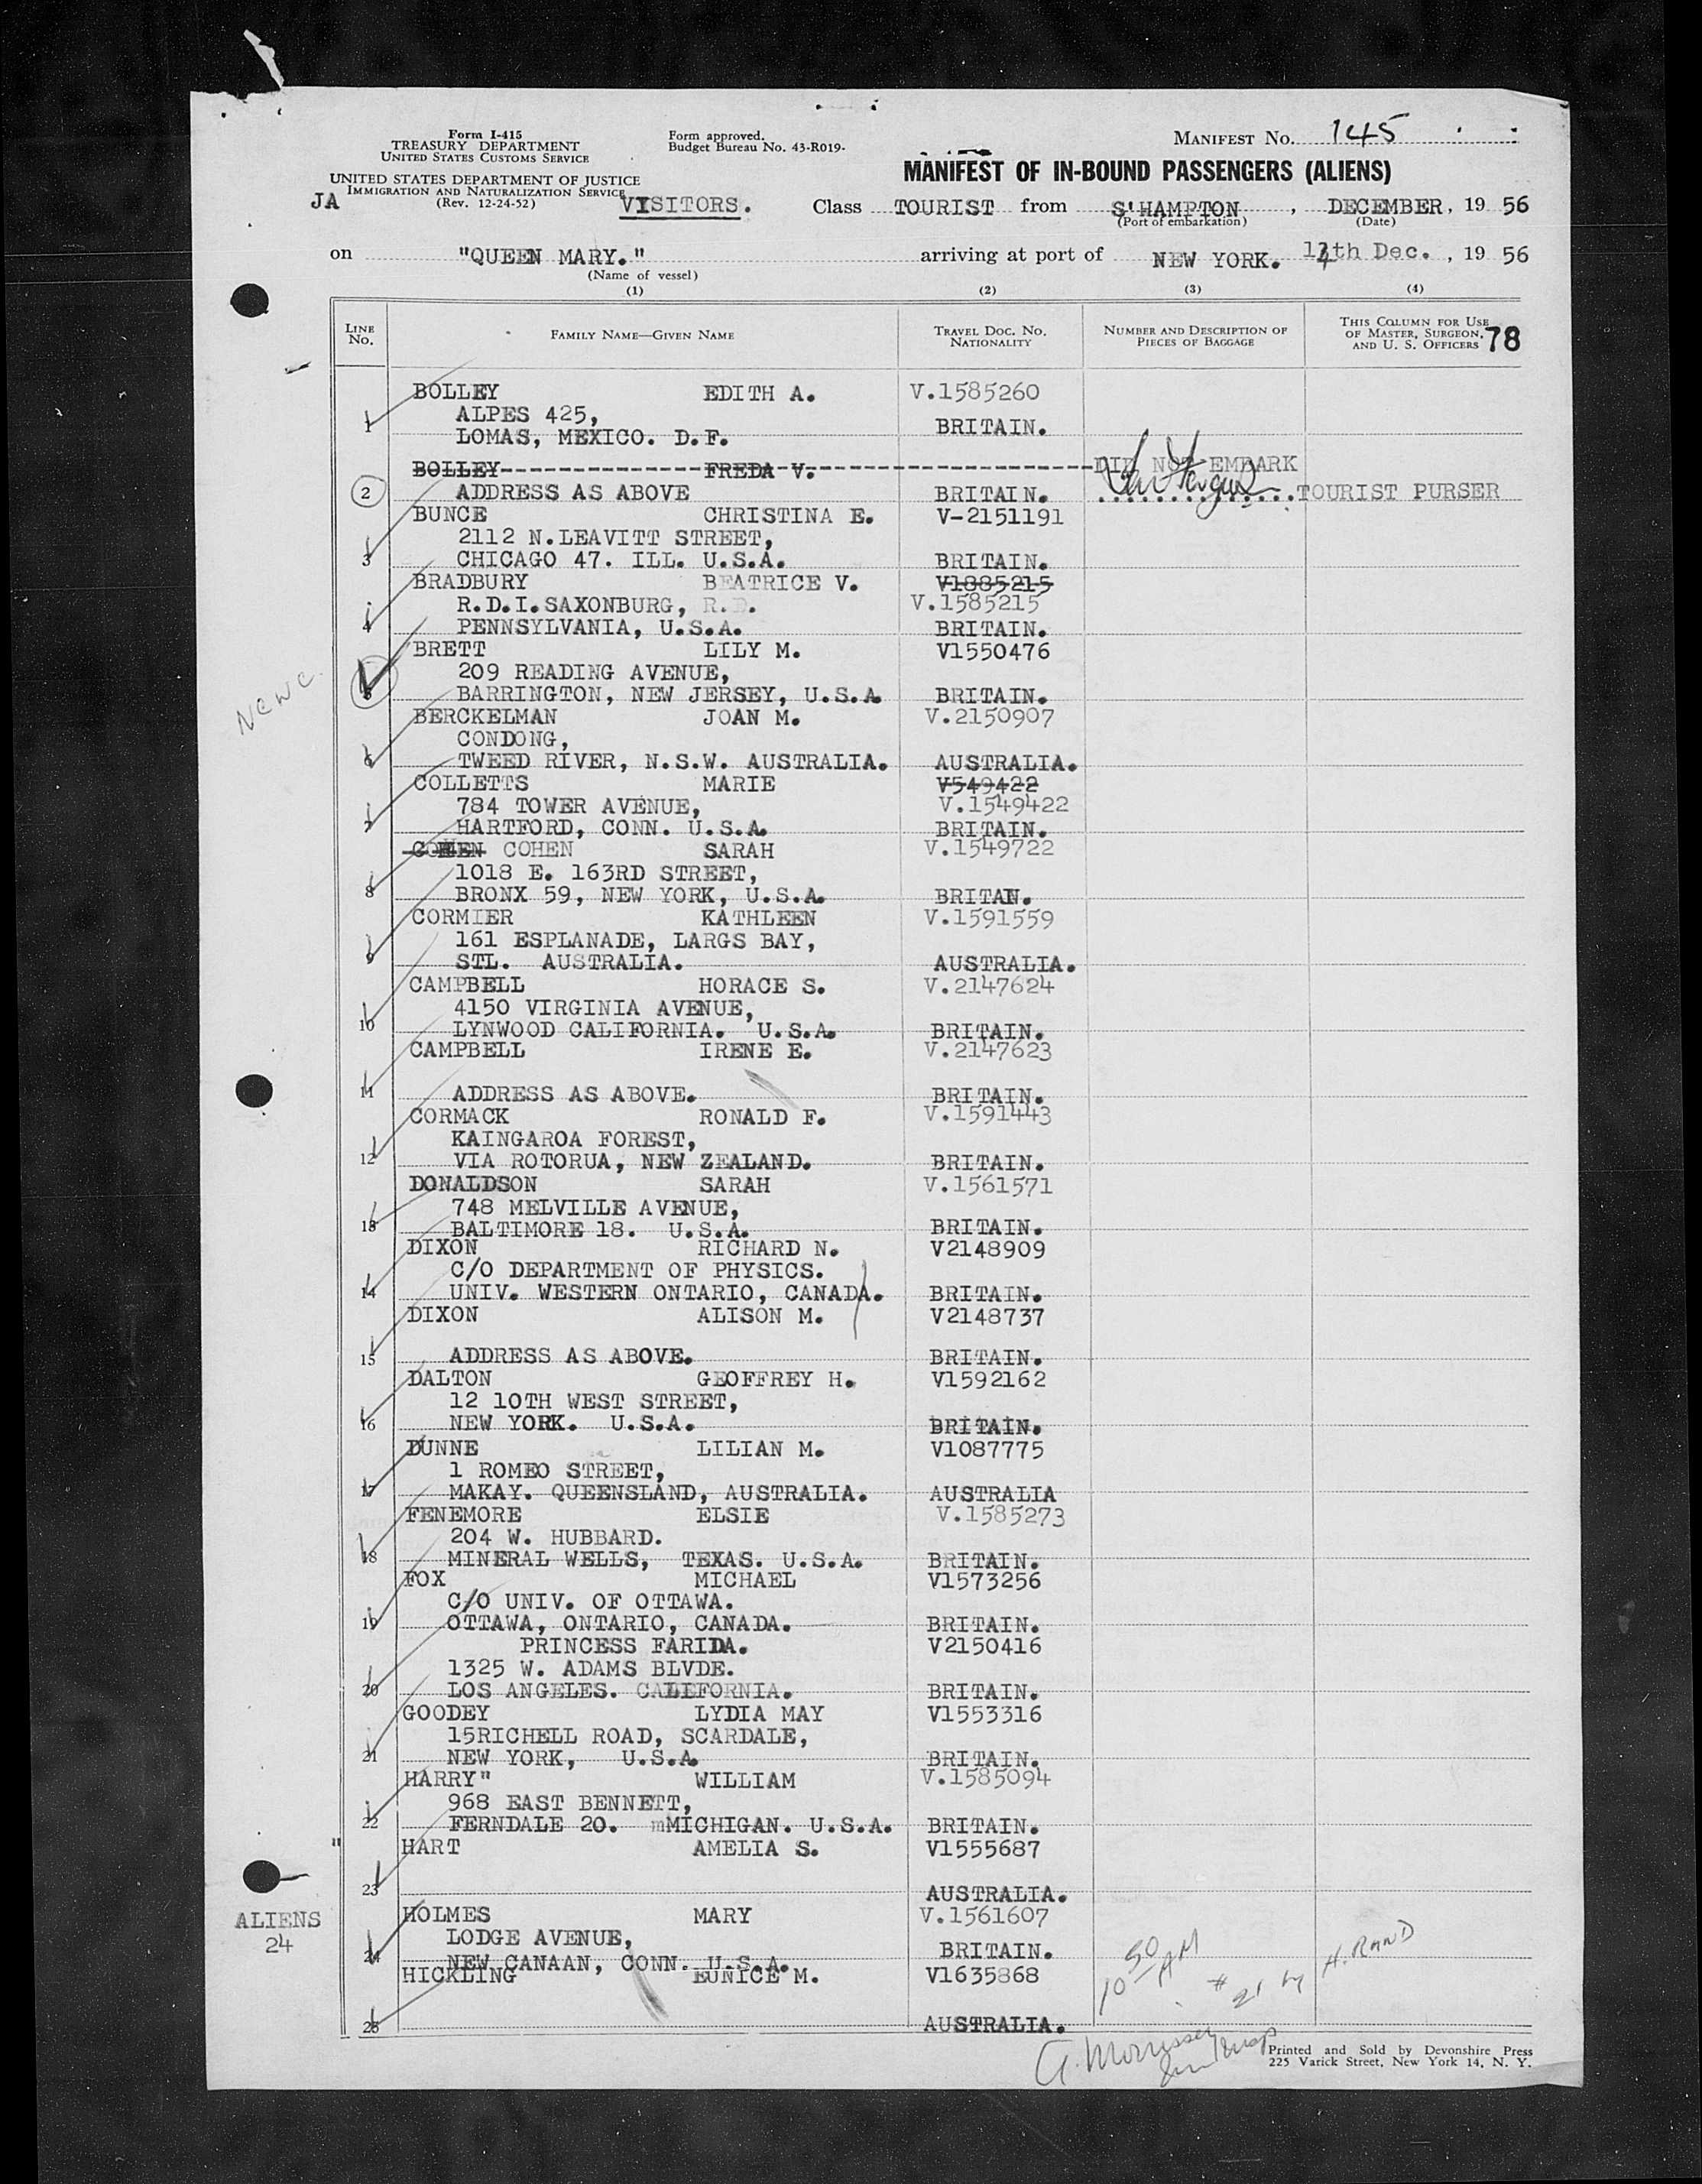 Form I-415
TREASURY DEPARTMENT
UNITED STATES CUSTOMS SERVICE
Form approved.
Budget Bureau No. 43-R019-
MANIFEST No. 145
UNITED STATES DEPARTMENT OF JUSTICE
IMMIGRATION AND NATURALIZATION SERVICE
(Rev. 12-24-52)
MANIFEST OF IN-BOUND PASSENGERS (ALIENS)
JA VISITORS. Class TOURIST from S'HAMPTON, DECEMBER, 19 56
(Port of embarkation) (Date)
on "QUEEN MARY." arriving at port of NEW YORK. 14th Dec., 19 56
(Name of vessel)
(1) (2) (3) (4)
LINE No. FAMILY NAME—GIVEN NAME TRAVEL DOC. NO. NATIONALITY NUMBER AND DESCRIPTION OF PIECES OF BAGGAGE THIS COLUMN FOR USE OF MASTER, SURGEON, AND U. S. OFFICERS 78
BOLLEY EDITH A. V.1585260
ALPES 425,
1 LOMAS, MEXICO. D.F. BRITAIN.
BOLLEY FREDA V. DID NOT EMBARK
2 ADDRESS AS ABOVE BRITAIN. TOURIST PURSER
BUNCE CHRISTINA E. V-2151191
2112 N.LEAVITT STREET,
3 CHICAGO 47. ILL. U.S.A. BRITAIN.
BRADBURY BEATRICE V. V1885215
R.D.I.SAXONBURG, R.D. V.1585215
4 PENNSYLVANIA, U.S.A. BRITAIN.
BRETT LILY M. V1550476
209 READING AVENUE,
5 BARRINGTON, NEW JERSEY, U.S.A BRITAIN.
BERCKELMAN JOAN M. V.2150907
CONDONG,
6 TWEED RIVER, N.S.W. AUSTRALIA. AUSTRALIA.
COLLETTS MARIE V549422
784 TOWER AVENUE, V.1549422
7 HARTFORD, CONN. U.S.A. BRITAIN.
COHEN SARAH V.1549722
1018 E. 163RD STREET,
8 BRONX 59, NEW YORK, U.S.A. BRITAN.
CORMIER KATHLEEN V.1591559
161 ESPLANADE, LARGS BAY,
9 STL. AUSTRALIA. AUSTRALIA.
CAMPBELL HORACE S. V.2147624
4150 VIRGINIA AVENUE,
10 LYNWOOD CALIFORNIA. U.S.A. BRITAIN.
CAMPBELL IRENE E. V.2147623
11 ADDRESS AS ABOVE. BRITAIN.
CORMACK RONALD F. V.1591443
KAINGAROA FOREST,
12 VIA ROTORUA, NEW ZEALAND. BRITAIN.
DONALDSON SARAH V.1561571
748 MELVILLE AVENUE,
13 BALTIMORE 18. U.S.A. BRITAIN.
DIXON RICHARD N. V2148909
C/O DEPARTMENT OF PHYSICS.
14 UNIV. WESTERN ONTARIO, CANADA. BRITAIN.
DIXON ALISON M. V2148737
15 ADDRESS AS ABOVE. BRITAIN.
DALTON GEOFFREY H. V1592162
12 10TH WEST STREET,
16 NEW YORK. U.S.A. BRITAIN.
DUNNE LILIAN M. V1087775
1 ROMEO STREET,
17 MAKAY. QUEENSLAND, AUSTRALIA. AUSTRALIA
FENEMORE ELSIE V.1585273
204 W. HUBBARD.
18 MINERAL WELLS, TEXAS. U.S.A. BRITAIN.
FOX MICHAEL V1573256
C/O UNIV. OF OTTAWA.
19 OTTAWA, ONTARIO, CANADA. BRITAIN.
PRINCESS FARIDA. V2150416
1325 W. ADAMS BLVDE.
20 LOS ANGELES. CALIFORNIA. BRITAIN.
GOODEY LYDIA MAY V1553316
15RICHELL ROAD, SCARDALE,
21 NEW YORK, U.S.A BRITAIN.
HARRY" WILLIAM V.1585094
968 EAST BENNETT,
22 FERNDALE 20. mMICHIGAN. U.S.A. BRITAIN.
" HART AMELIA S. V1555687
23 AUSTRALIA.
ALIENS
24
HOLMES MARY V.1561607
LODGE AVENUE,
24 NEW CANAAN, CONN. U.S.A. BRITAIN.
HICKLING EUNICE M. V1635868
25 AUSTRALIA.
10 50 AM # 21 H. RAND
G. Morrissey
Printed and Sold by Devonshire Press
225 Varick Street, New York 14, N. Y.